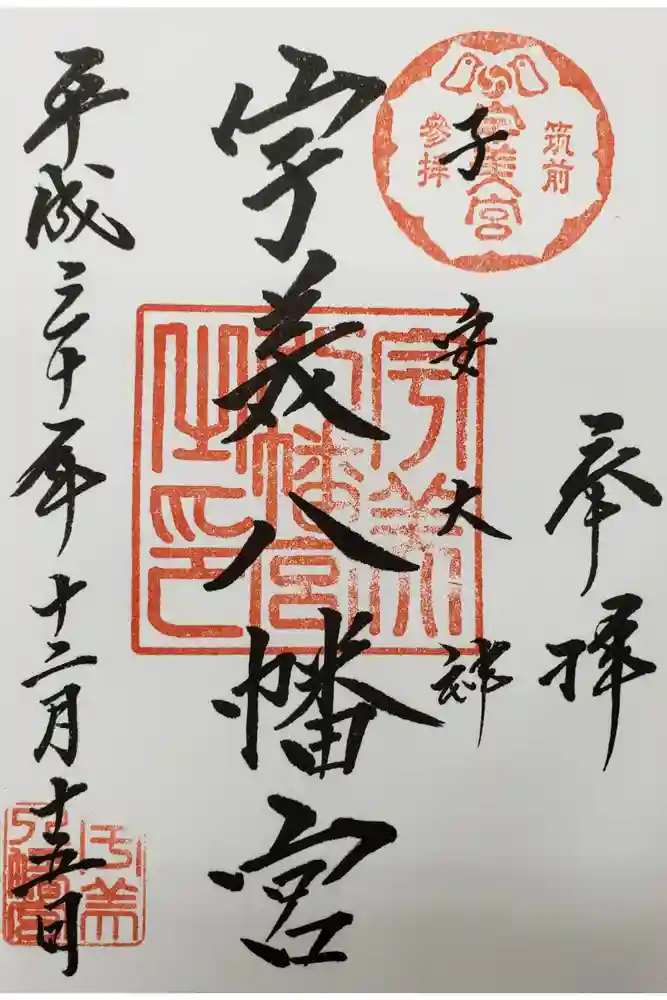 奉拝
筑前
宇美宮
參拝
子安大神
宇美八幡宮
宇美
八幡宮
之印
平成三十年十二月十五日
宇美
八幡宮